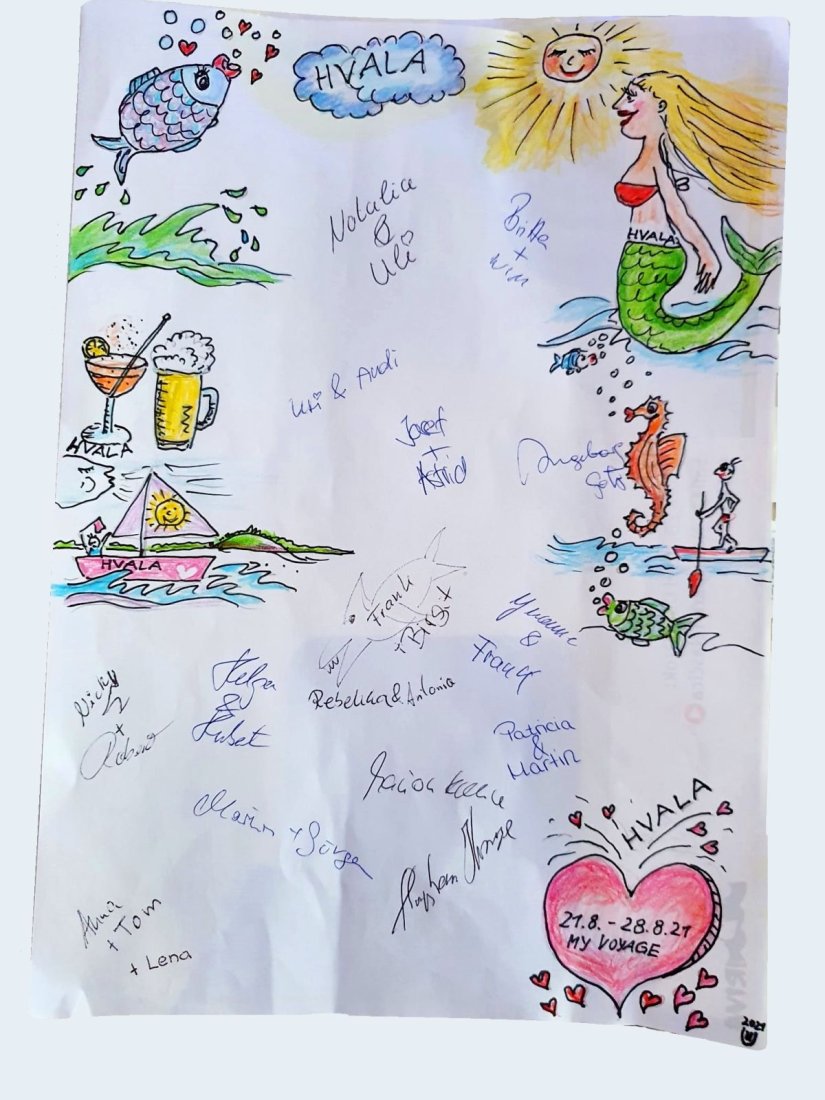 HVALA
Natalia
&
Uli
Britta
+
HVALA
Uli & Andi
HVALA
Josef
+
Astrid
Ingeborg
HVALA
Frank
+ Birgit
Yvonne
&
Frank
Helga
&
Hubert
Rebekka & Antonia
Nicky
+
Patricia
&
Martin
Marion
+
HVALA
Stephan
Anna
+ Tom
+ Lena
21.8. - 28.8.21
MY VOYAGE
2021